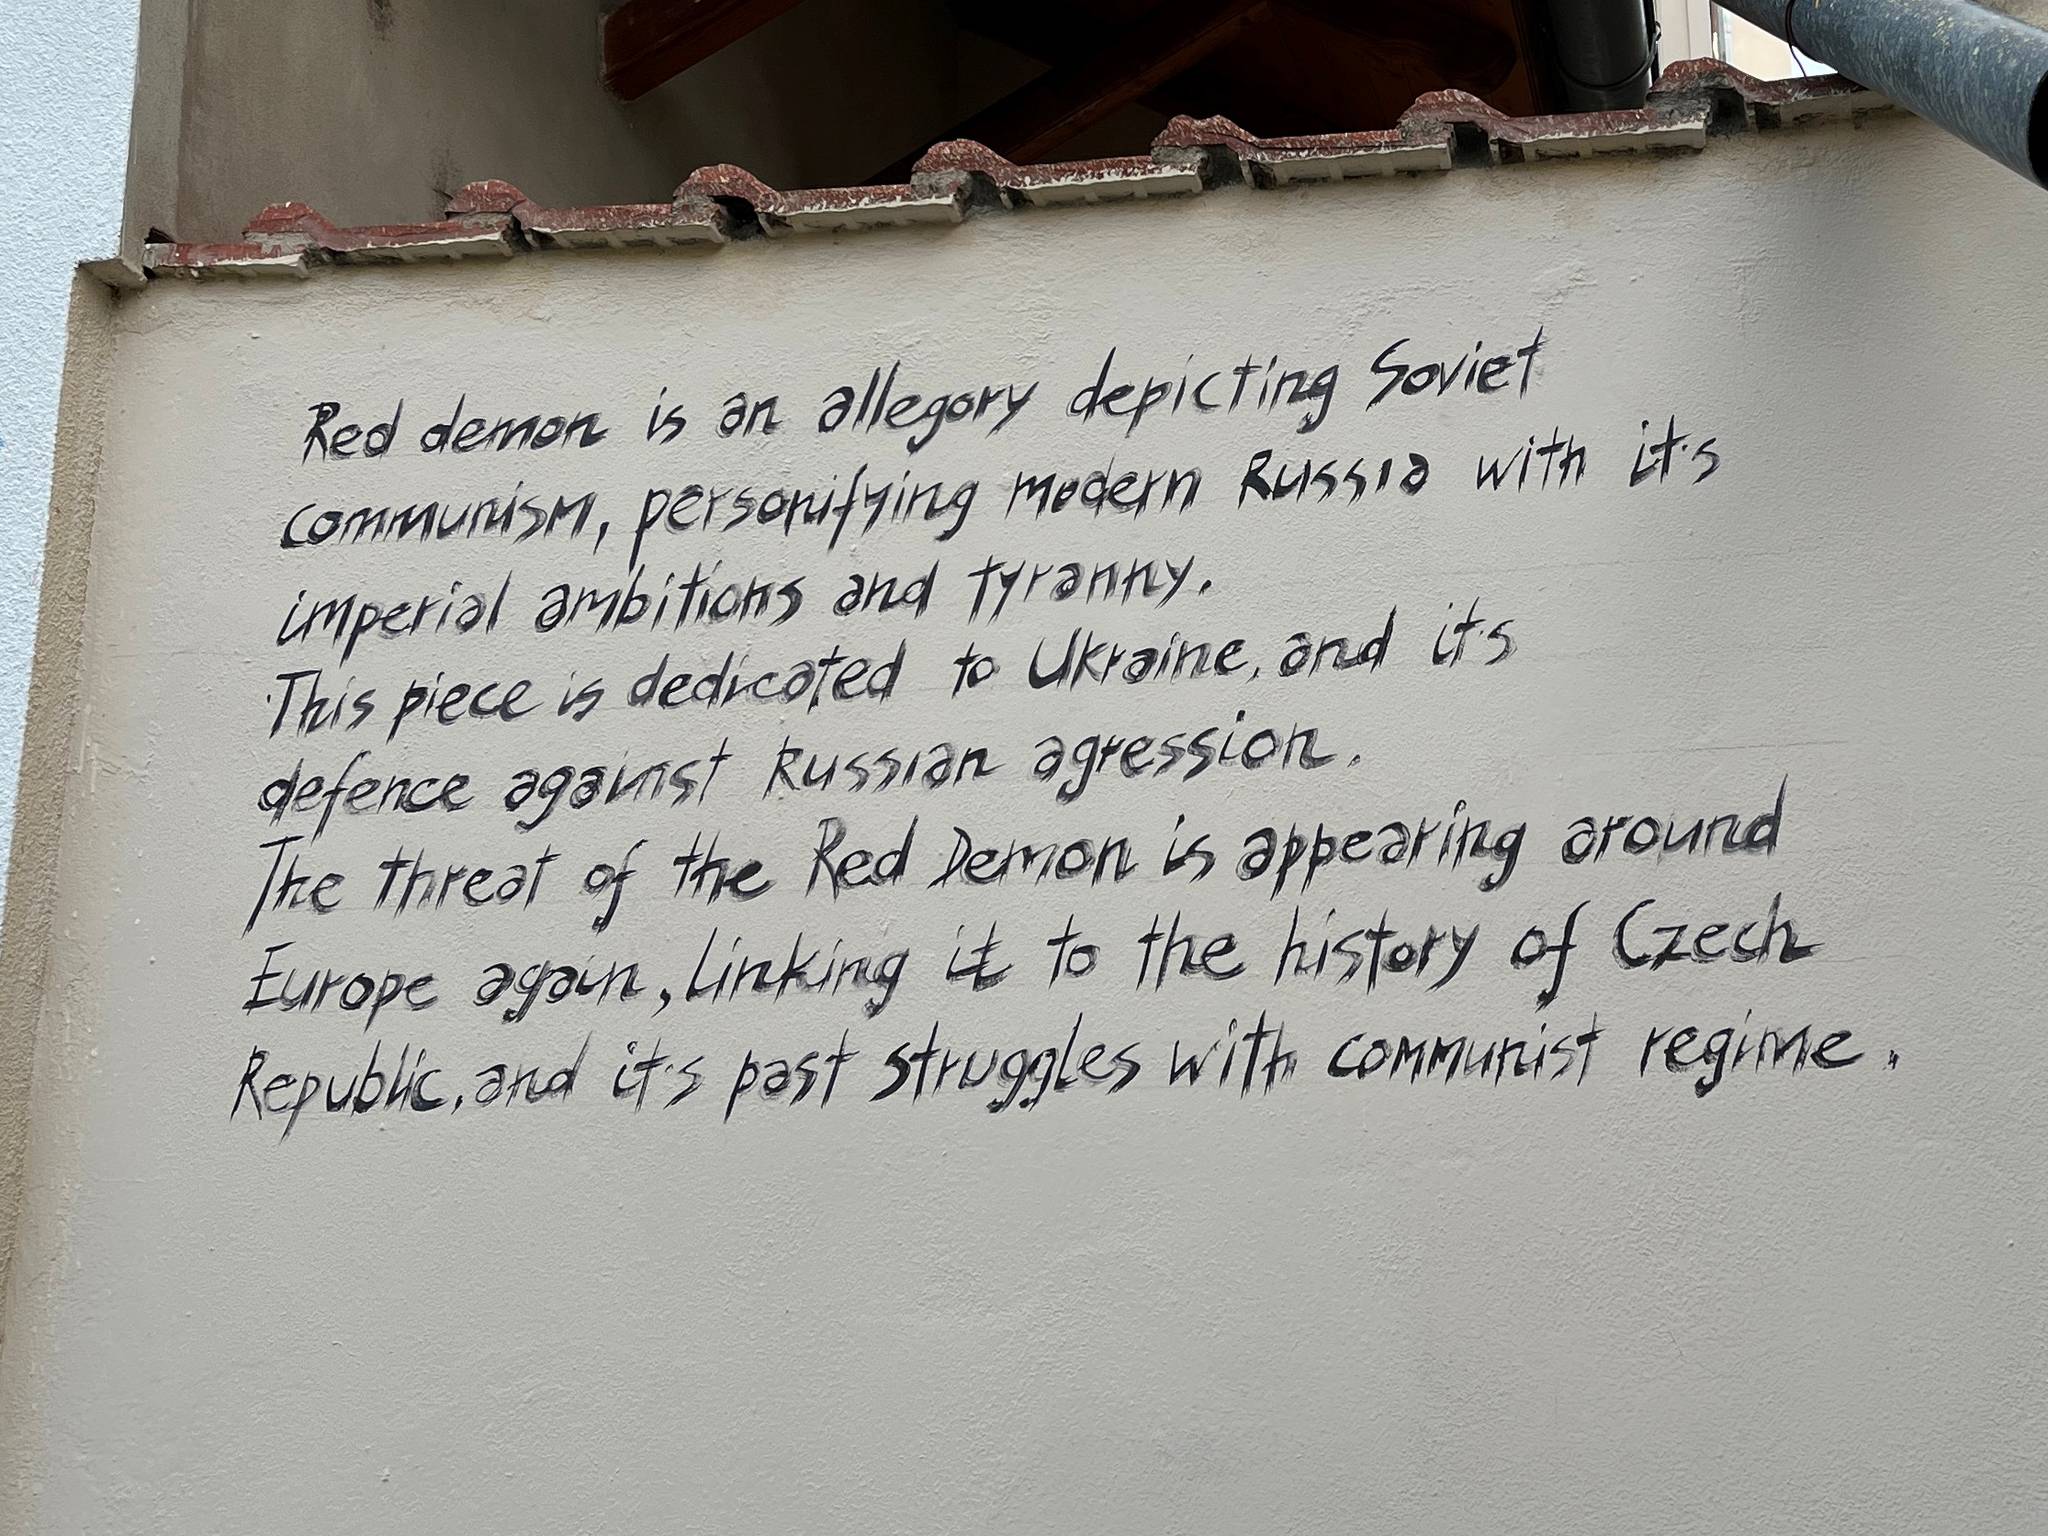 Red demon is an allegory depicting Soviet
communism, personifying modern Russia with it's
imperial ambitions and tyranny.
This piece is dedicated to Ukraine, and it's
defence against Russian agression.
The threat of the Red Demon is appearing around
Europe again, linking it to the history of Czech
Republic, and it's past struggles with communist regime.